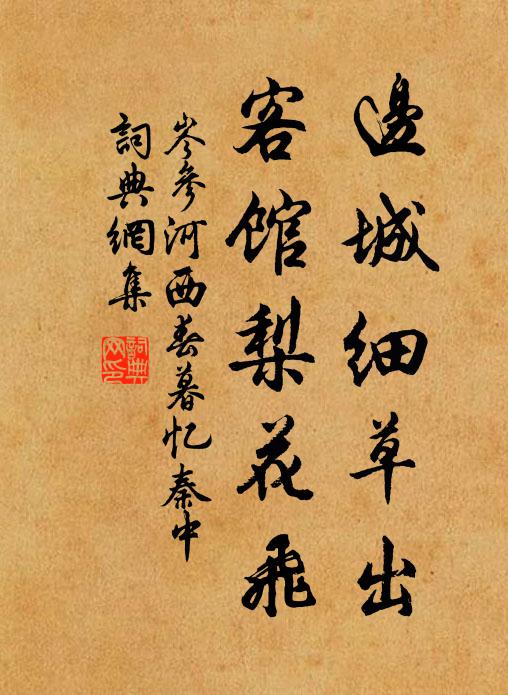 邊城細草出
客館梨花飛
岑參河西春暮忆秦中
詞典網集
詞典網印